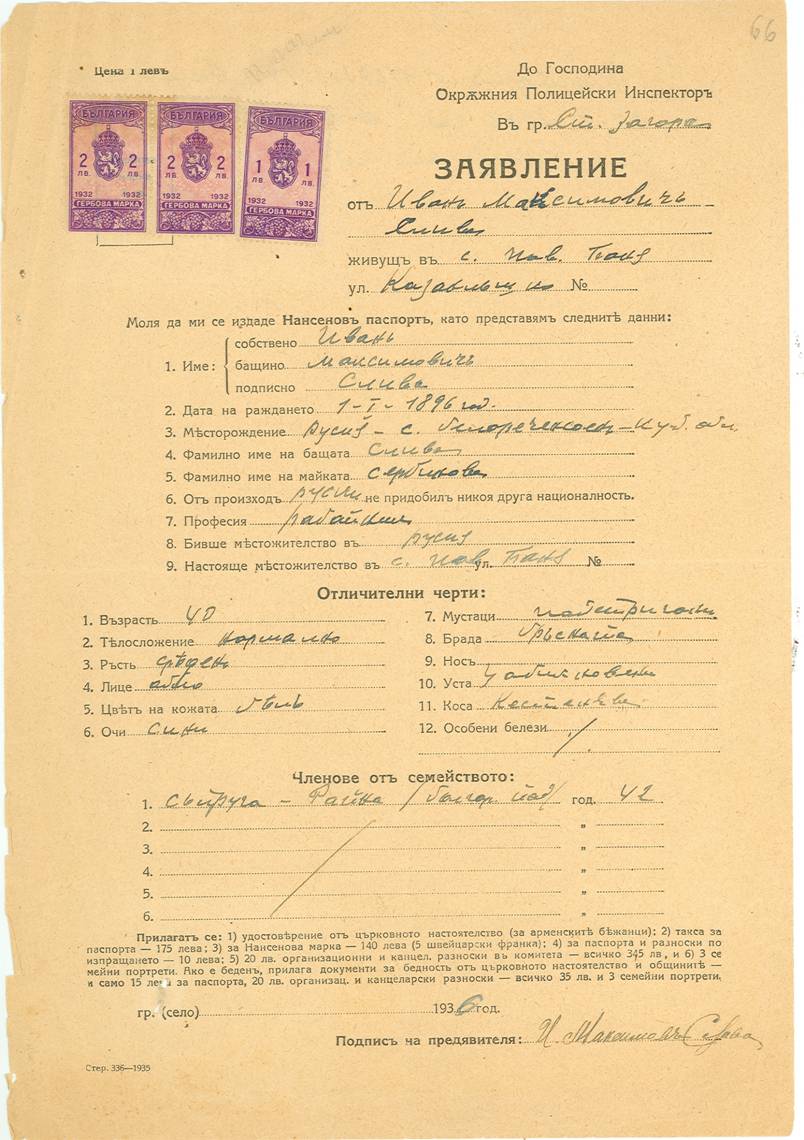 66
Цена 1 левъ
До Господина
Окрѫжния Полицейски Инспекторъ
Въ гр. Ст. Загора
БЪЛГАРИЯ БЪЛГАРИЯ БЪЛГАРИЯ
2 2 2 2 1 1
ЛВ. ЛВ. ЛВ. ЛВ. ЛВ. ЛВ.
1932 1932 1932 1932 1932 1932
ГЕРБОВА МАРКА ГЕРБОВА МАРКА ГЕРБОВА МАРКА
ЗАЯВЛЕНИЕ
отъ Иванъ Максимовичъ
Слива
живущъ въ с. Пав. Баня
ул. Казанлъшко №
Моля да ми се издаде Нансеновъ паспортъ, като представямъ следнитѣ данни:
1. Име: собствено Иванъ
бащино Максимовичъ
подписно Слива
2. Дата на раждането 1-I-1896 год.
3. Мѣсторождение Русия - с. Белореченская - Куб. обл.
4. Фамилно име на бащата Слива
5. Фамилно име на майката Сербинова
6. Отъ произходъ русинъ не придобилъ никоя друга националность.
7. Професия работникъ
8. Бивше мѣстожителство въ Русия
9. Настояще мѣстожителство въ с. Пав. ул. Баня №
Отличителни черти:
1. Възрасть 40
2. Тѣлосложение нормално
3. Ръсть срѣденъ
4. Лице
5. Цвѣтъ на кожата бѣлъ
6. Очи сини
7. Мустаци подстригани
8. Брада бръсната
9. Носъ
10. Уста обикновени
11. Коса кестенява
12. Особени белези /.
Членове отъ семейството:
1. Съпруга - Райна /българ. под/ год. 42
2. "
3. "
4. "
5. "
6. "
Прилагатъ се: 1) удостовѣрение отъ църковното настоятелство (за арменскитѣ бѣжанци); 2) такса за
паспорта — 175 лева; 3) за Нансенова марка — 140 лева (5 швейцарски франка); 4) за паспорта и разноски по
изпращането — 10 лева; 5) 20 лв. организационни и канцел. разноски въ комитета — всичко 345 лв, и 6) 3 се
мейни портрети. Ако е беденъ, прилага документи за бедность отъ църковното настоятелство и общинитѣ —
и само 15 лева за паспорта, 20 лв. организац. и канцеларски разноски — всичко 35 лв. и 3 семейни портрети.
гр. (село) 1936 год.
Подписъ на предявителя: И. Максимовъ Слива
Стер. 336—1935